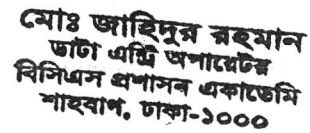 মোঃ জাহিদুর রহমান
ডাটা এন্ট্রি অপারেটর
বিসিএস প্রশাসন একাডেমি
শাহবাগ, ঢাকা-১০০০